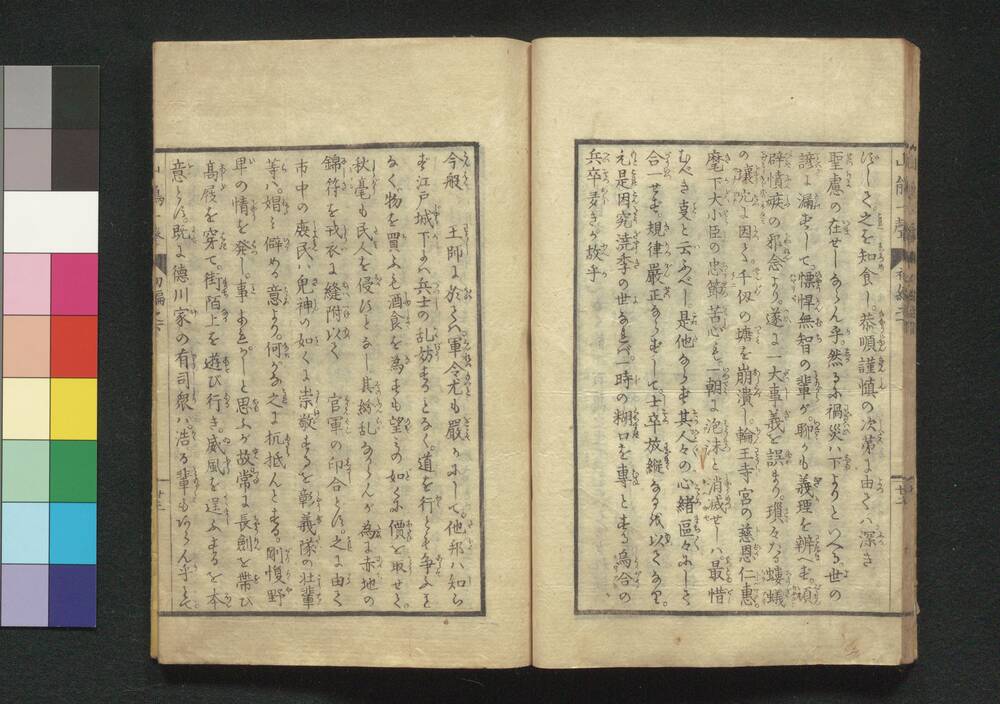 ぼしく之を知食し恭順謹慎の次第に由てハ深き
聖慮の在せしならん乎然るに禍災ハ下よりといへる世の
諺に漏ずして慓悍無智の輩が聊かも義理を辨へず頑
癖憤疾の邪念より遂に一大事義を誤まり瑣々たる螻蟻
の壤穴に因て千仭の塘を崩潰し輪王寺宮の慈恩仁惠
麾下大小臣の忠節苦心も一朝に泡沫と消滅せしハ最惜
むべき事と云ふべし是他ならず其人々の心緒區々にして
合一せず規律嚴正ならずして士卒放縱なるを以てなり
元是因究澆季の世なれバ一時の糊口を專とする烏合の
兵卒多きが故乎
今般 王師に於てハ軍令尤も嚴かにして他邦ハ知ら
ず江戸城下にハ兵士の乱妨するとなく道を行とも爭ふと
なく物を買ふも酒食を為すも望みの如くに價を取せて
秋毫も民人を侵ことなし其紛乱ならんが為に赤地の
錦符を戎衣に縫附以て 官軍の印合とす之に由て
市中の庶民ハ鬼神の如くに崇敬するを彰義隊の壮輩
等ハ娼ミ僻める意より何がな之に抗抵んとする剛愎野
卑の情を発し事あれがしと思ふが故常に長劍を帶び
高屐を穿て街陌上を遊び行き威風を逞ふするを本
意とす既に德川家の有司衆ハ浩る輩もあらん乎とて